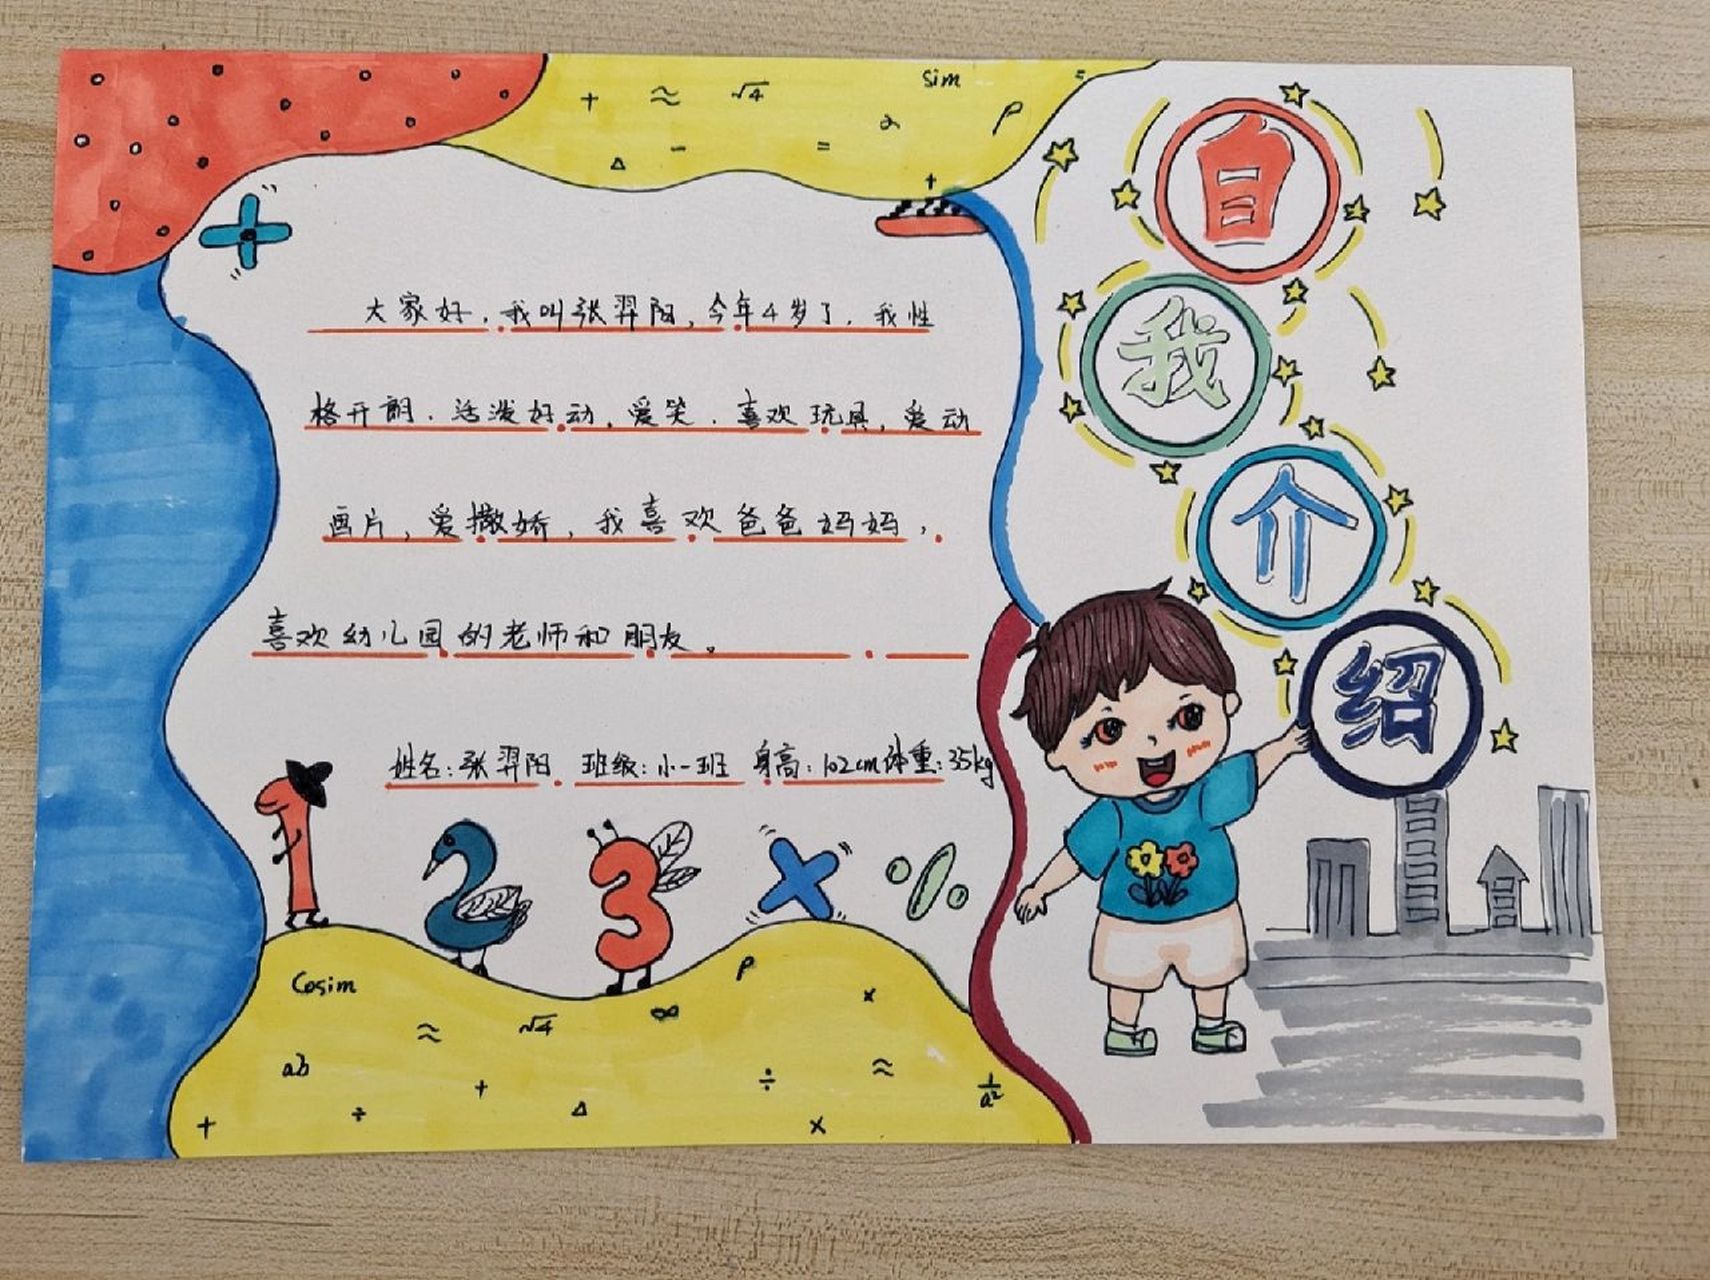 自我介绍
大家好，我叫张羿阳，今年4岁了，我性
格开朗，活泼好动，爱笑，喜欢玩具，爱动
画片，爱撒娇，我喜欢爸爸妈妈，
喜欢幼儿园的老师和朋友。
姓名：张羿阳 班级：小一班 身高：102cm 体重：35kg
+ ≈ √4 Sim =
α ρ
△ - = +
1 2 3 × %
Cosim ρ ×
≈ √4 ∞
ab + ÷ ≈ 1/a²
+ ÷ △ ×